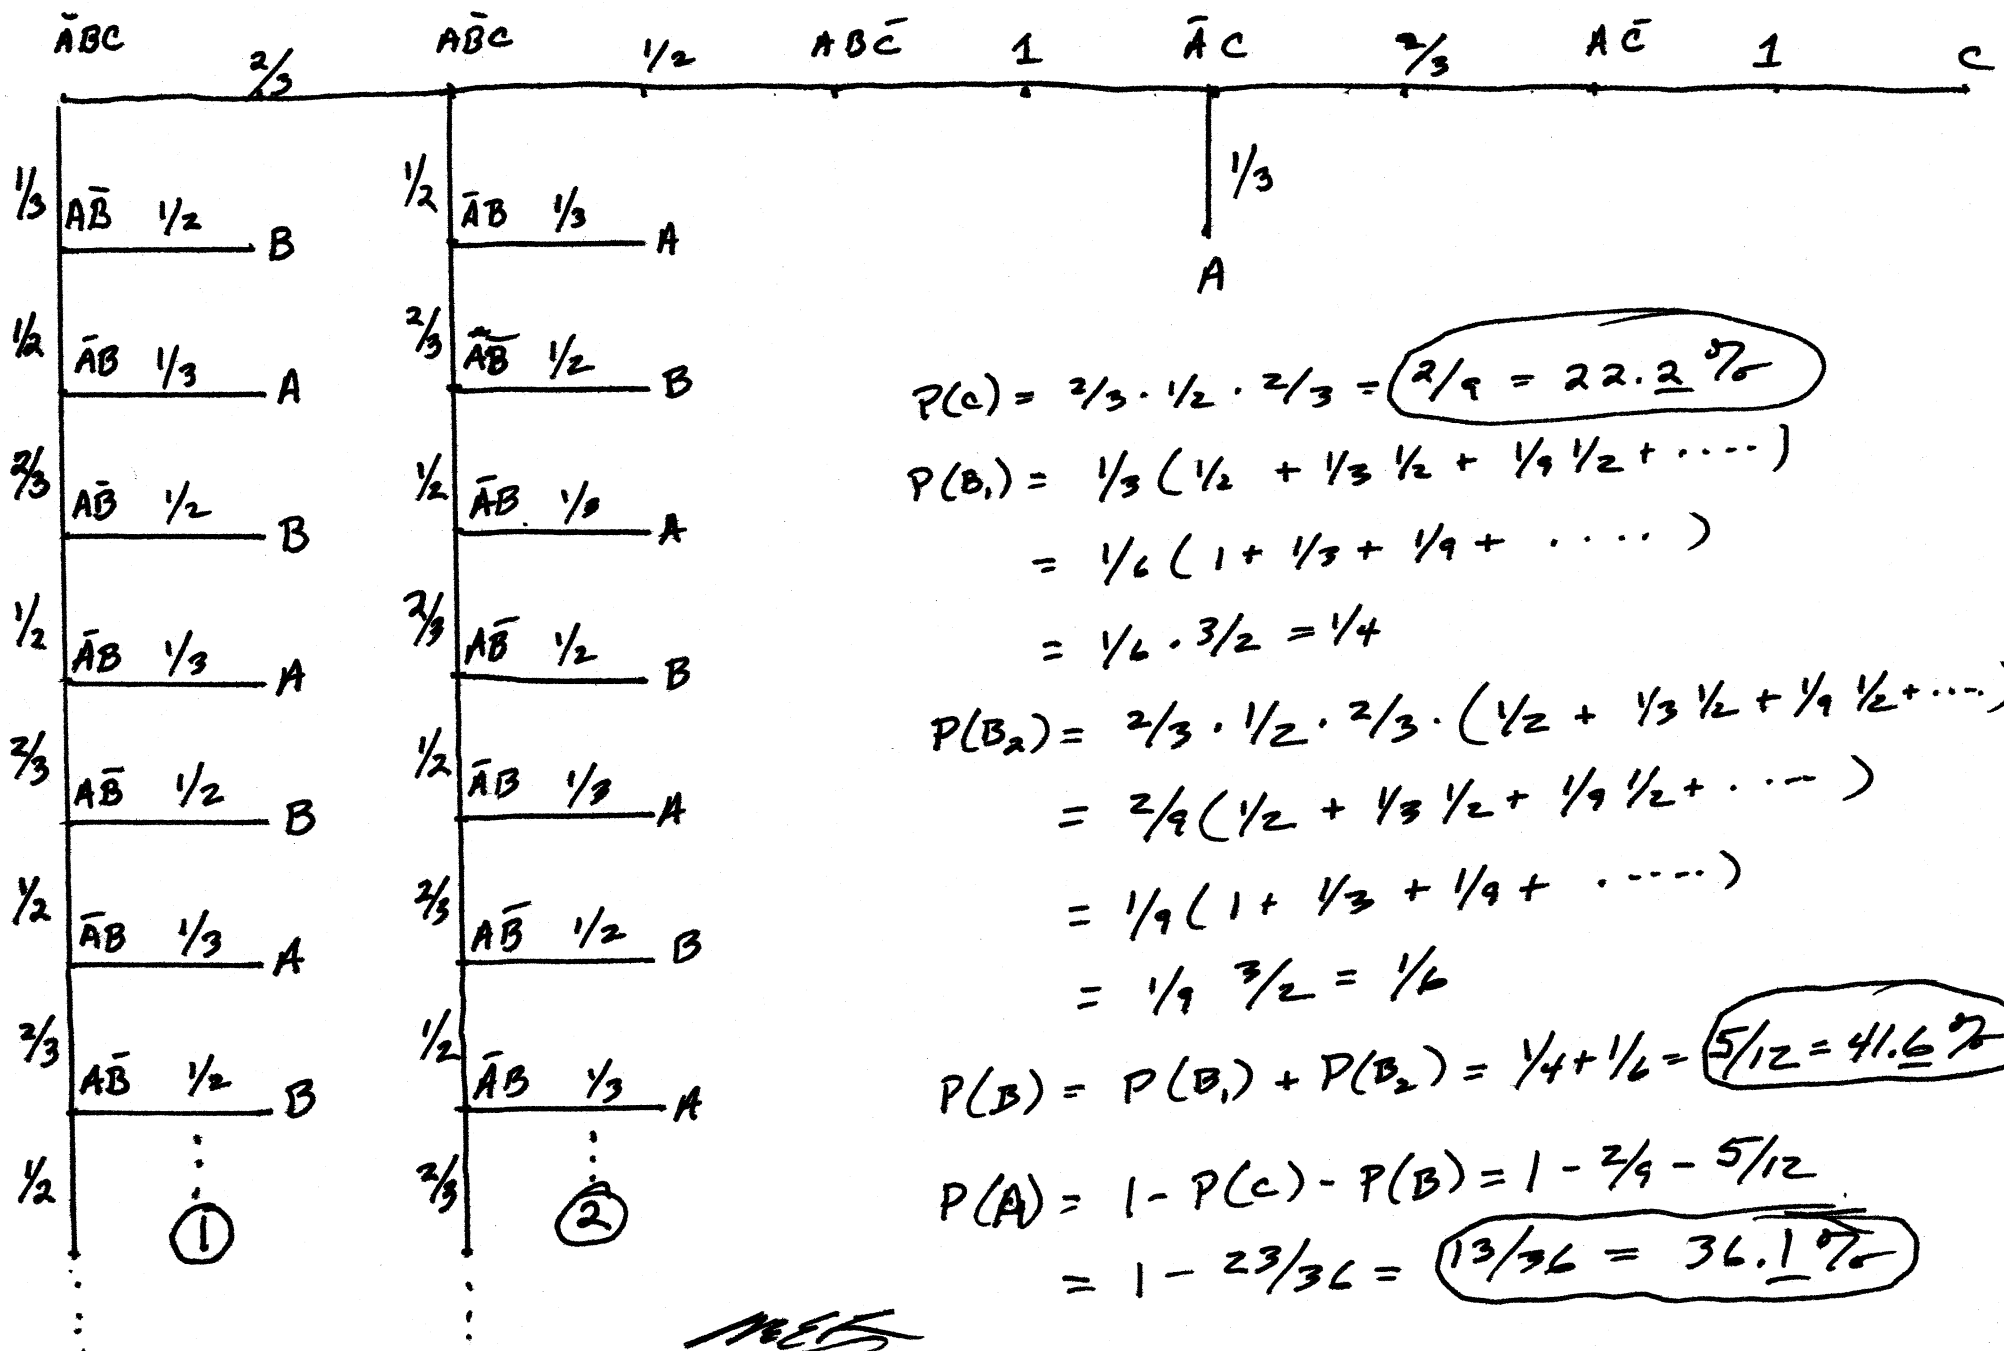 ĀBC 2/3 AB̄C 1/2 ABC̄ 1 ĀC 2/3 AC̄ 1 C
1/3 AB̄ 1/2 B
1/2 ĀB 1/3 A
2/3 AB̄ 1/2 B
1/2 ĀB 1/3 A
2/3 AB̄ 1/2 B
1/2 ĀB 1/3 A
2/3 AB̄ 1/2 B
1/2
1
1/2 ĀB 1/3 A
2/3 AB̄ 1/2 B
1/2 ĀB 1/3 A
2/3 AB̄ 1/2 B
1/2 ĀB 1/3 A
2/3 AB̄ 1/2 B
1/2 ĀB 1/3 A
2/3
2
1/3
A
P(C) = 2/3 · 1/2 · 2/3 = 2/9 = 22.2%
P(B₁) = 1/3 (1/2 + 1/3 1/2 + 1/9 1/2 + ·····)
= 1/6 (1 + 1/3 + 1/9 + ·····)
= 1/6 · 3/2 = 1/4
P(B₂) = 2/3 · 1/2 · 2/3 · (1/2 + 1/3 1/2 + 1/9 1/2 + ·····)
= 2/9 (1/2 + 1/3 1/2 + 1/9 1/2 + ····)
= 1/9 (1 + 1/3 + 1/9 + ······)
= 1/9 3/2 = 1/6
P(B) = P(B₁) + P(B₂) = 1/4 + 1/6 = 5/12 = 41.6%
P(A) = 1 - P(C) - P(B) = 1 - 2/9 - 5/12
= 1 - 23/36 = 13/36 = 36.1%